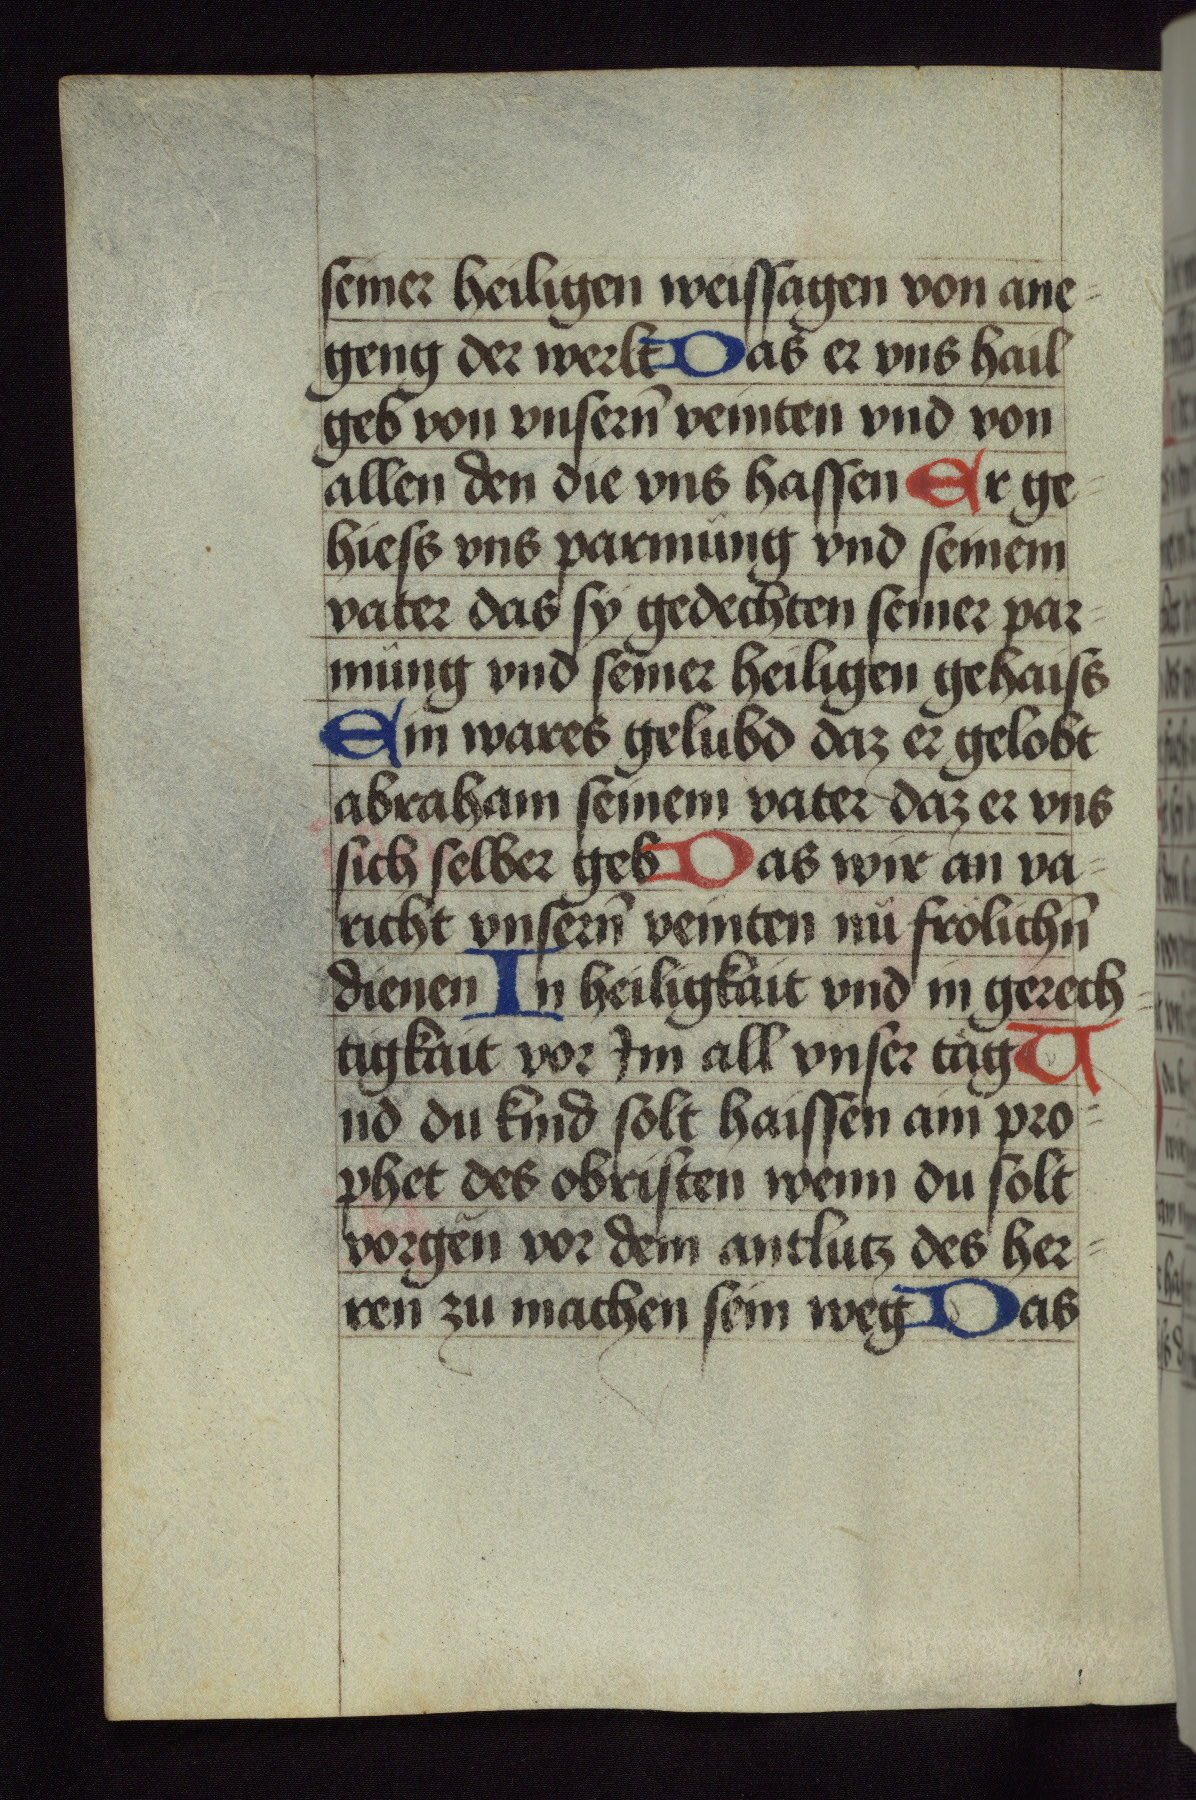 seiner heiligen weissagen von ane-
geng der werlt Das er vns hail
geb von vnsern̄ veinten vnd von
allen den die vns hassen Er ge-
hiess vns parmu̇ng vnd seinem
vater das sy gedechten seiner par-
mu̇ng vnd seiner heiligen gehaiss
Ein wares gelubd daz er gelobt
abraham seinem vater daz er vns
sich selber geb Das wir an va-
richt vnsern̄ veinten nu̇ frölichn̄
dienen In heiligkait vnd in gerech-
tigkait vor Im all vnser täg U
nd du kind solt haissen ain pro-
phet des obristen wenn du solt
vorgen̄ vor dem antlutz des her-
ren zu machen sein weg Das